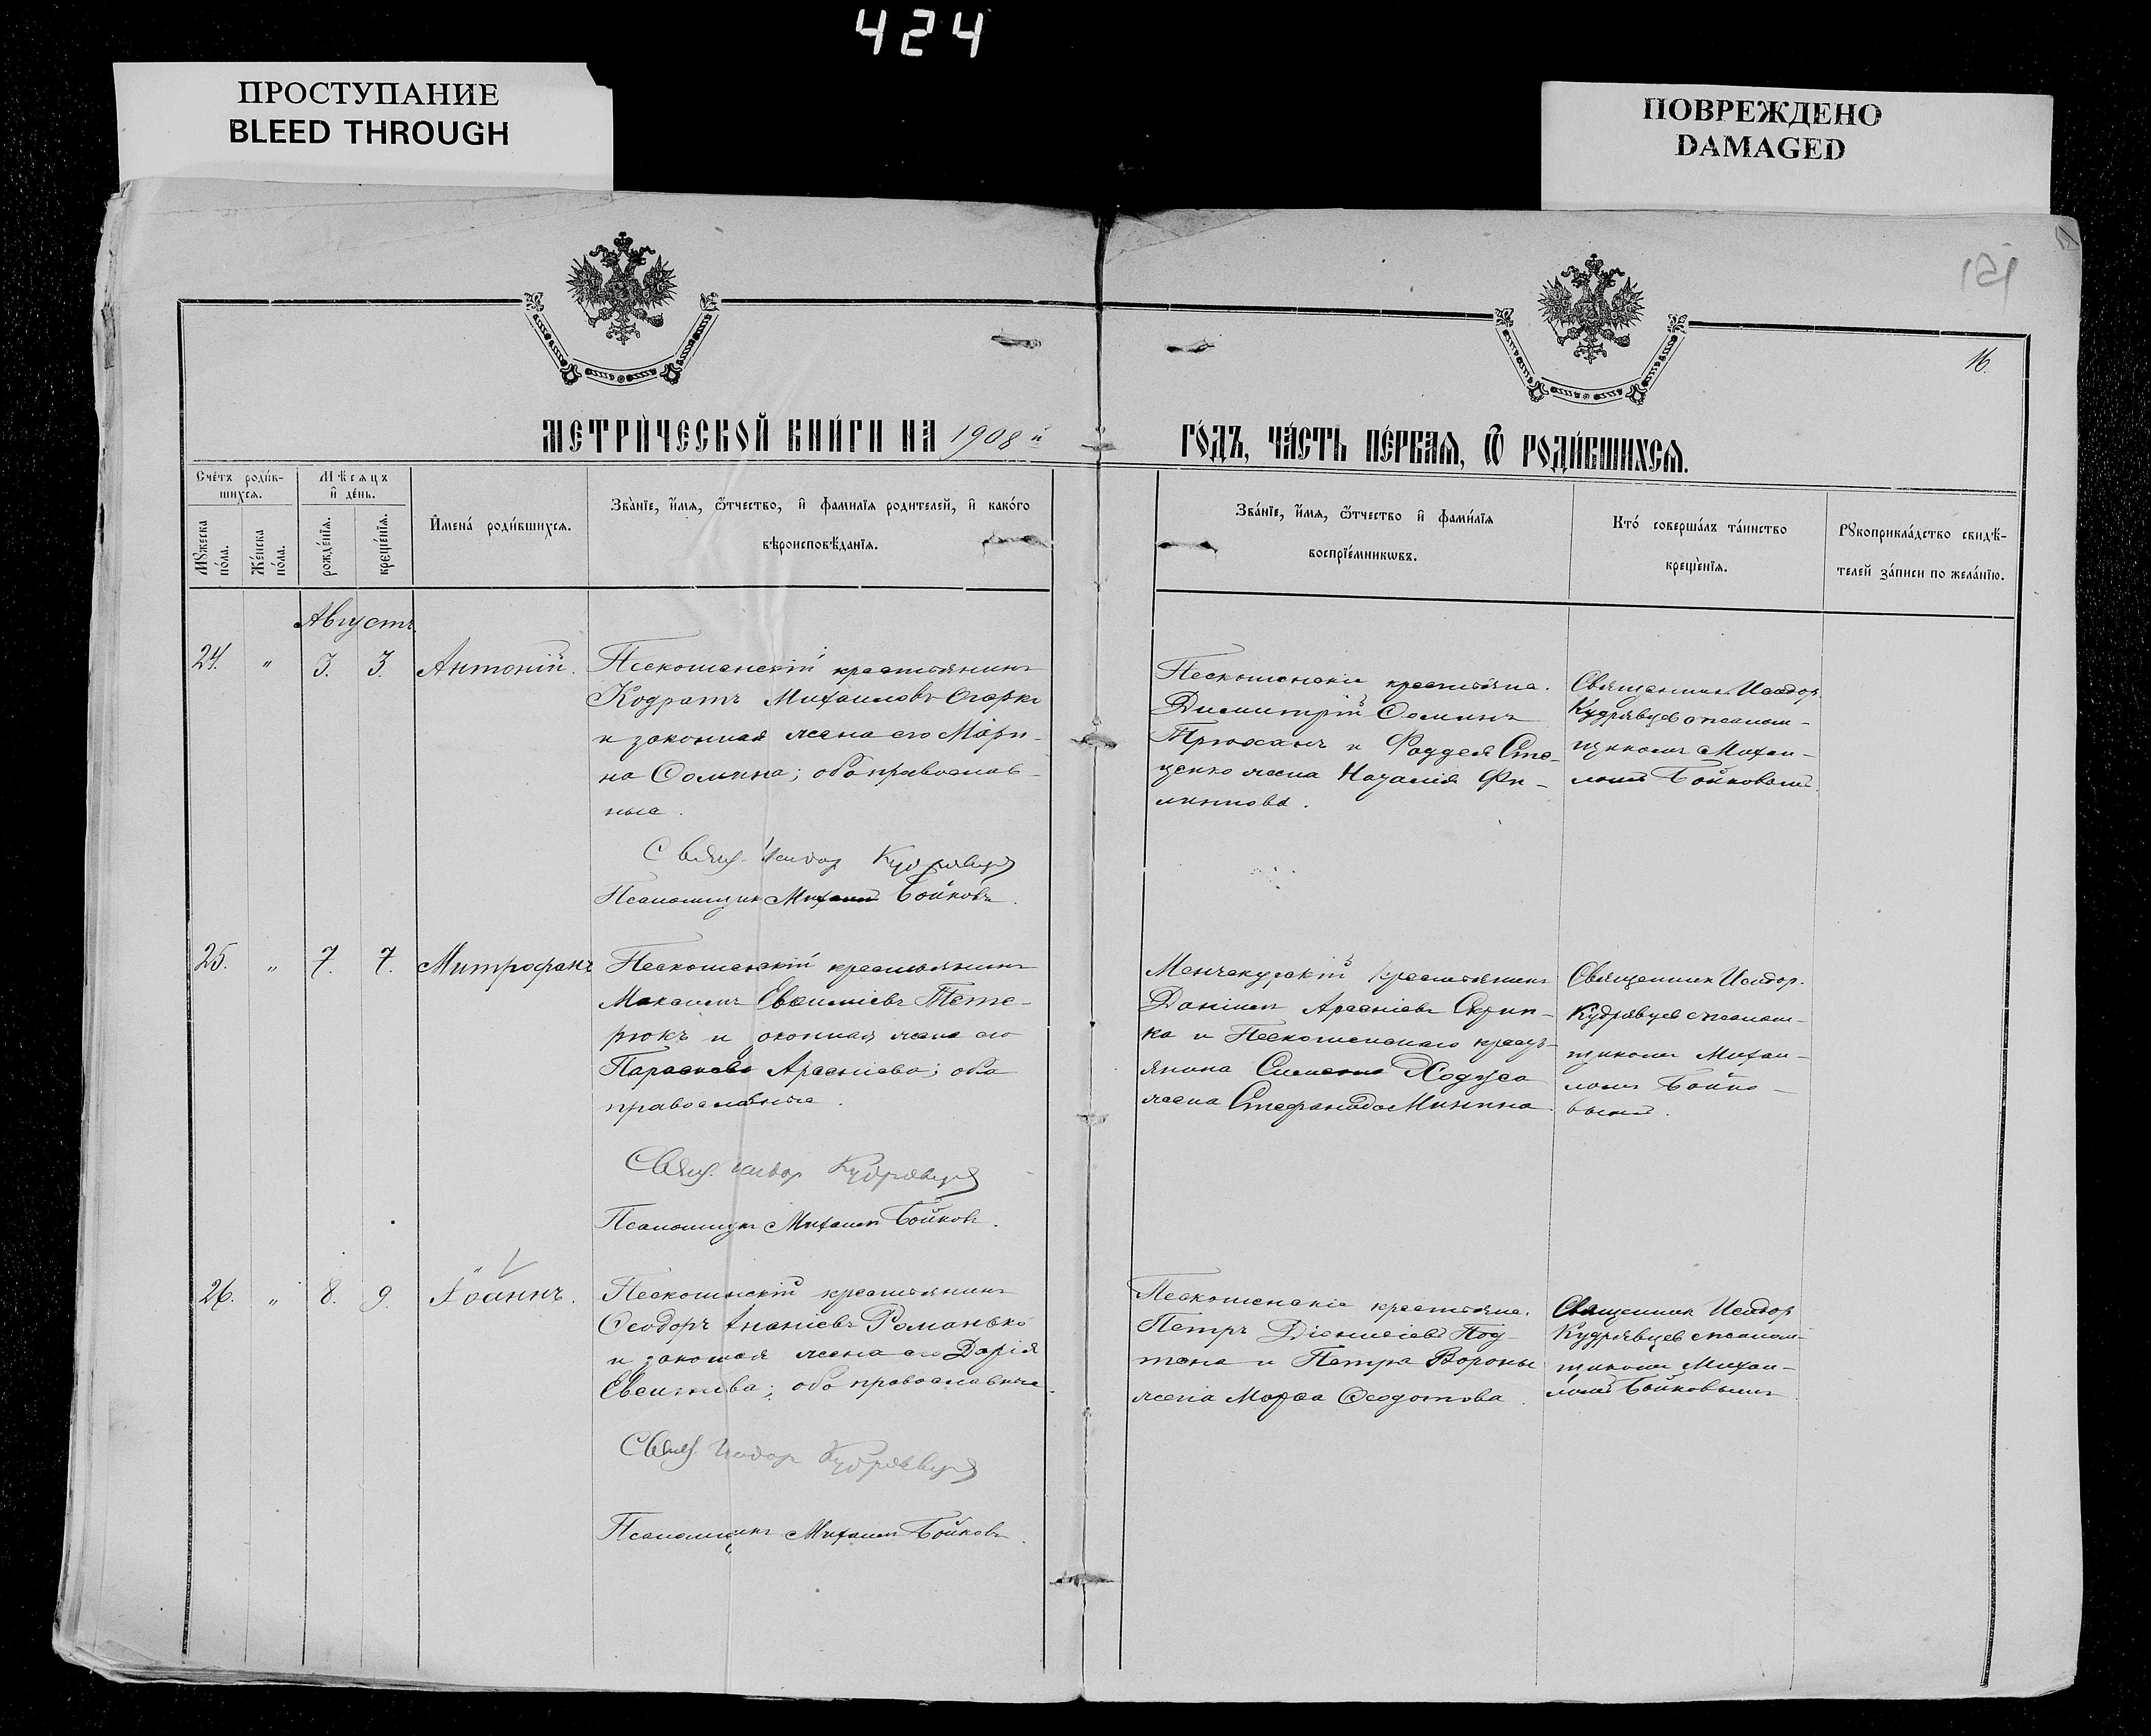 424
ПРОСТУПАНИЕ
BLEED THROUGH
ПОВРЕЖДЕНО
DAMAGED
121
16.
МЕТРИ́ЧЕСКОЙ КНИ́ГИ НА 1908 й
ГО́ДЪ, ЧА́СТЬ ПЕ́РВАЯ, Ѿ РОДИ́ВШИХСЯ.
Сче́тъ роди́в-
шихся.
Мѣсяцъ
и де́нь.
Мꙋжеска
по́ла.
Же́нска
по́ла.
рожде́нїя.
креще́нїя.
Имена́ роди́вшихся.
Зва́нїе, и́мя, ѻ́тчество, и фами́лїя родителей, и како́го
вѣроисповѣ́данїя.
Зва́нїе, и́мя, ѻ́тчество и фами́лїя
воспрїе́мникѡвъ.
Кто́ соверша́лъ та́инство
креще́нїя.
Рꙋкоприкла́дство свидѣ́-
телей за́писи по жела́нїю.
Августъ.
24. " 3. 3. Антоній.
Пескошенскій крестьянинъ
Кодратъ Михаиловъ Огарко
и законная жена его Мари-
на Ѳомина; оба православ-
ные.
Свящ. Исидор Кудрявцев
Псаломщик Михаил Бойковъ.
Пескошенскіе крестьяне.
Димитрій Ѳоминъ
и Фаддея Сте-
ценко жена Наталія Фи-
липпова.
Священник Исидор
Кудрявцев с псалом-
щиком Михаи-
лом Бойковым
25. " 7. 7. Митрофанъ
Пескошенскій крестьянинъ
Максимъ Евѳиміевъ Тете-
рюкъ и законная жена его
Параскева Арсеніева; оба
православные.
Свящ. Исидор Кудрявцев
Псаломщикъ Михаил Бойковъ.
Менчекурскій крестьянинъ
Даніилъ Арсеніевъ Скрип-
ка и Пескошенскаго кресть-
янина Симеона Ходуса
жена Стефанида Минина.
Священник Исидор.
Кудрявцев с псалом-
щиком Михаи-
лом Бойко-
вым.
26. " 8. 9. Іоаннъ.
Пескошенскій крестьянинъ
Ѳеодоръ Ананіевъ Романько
и законная жена его Дарія
Евсигнѣева; оба православные.
Свящ. Исидор Кудрявцев
Псаломщикъ Михаилъ Бойковъ.
Пескошенскіе крестьяне.
Петръ Діонисіевъ Под-
тепа и Петра Вороны
жена Марѳа Ѳеодотова.
Священник Исидор
Кудрявцев с псалом-
щиком Михаи-
лом Бойковымъ